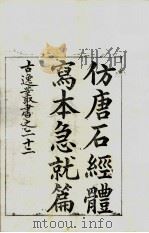 仿唐石經體
寫本急就篇
古逸叢書之二十二
mtoou.info